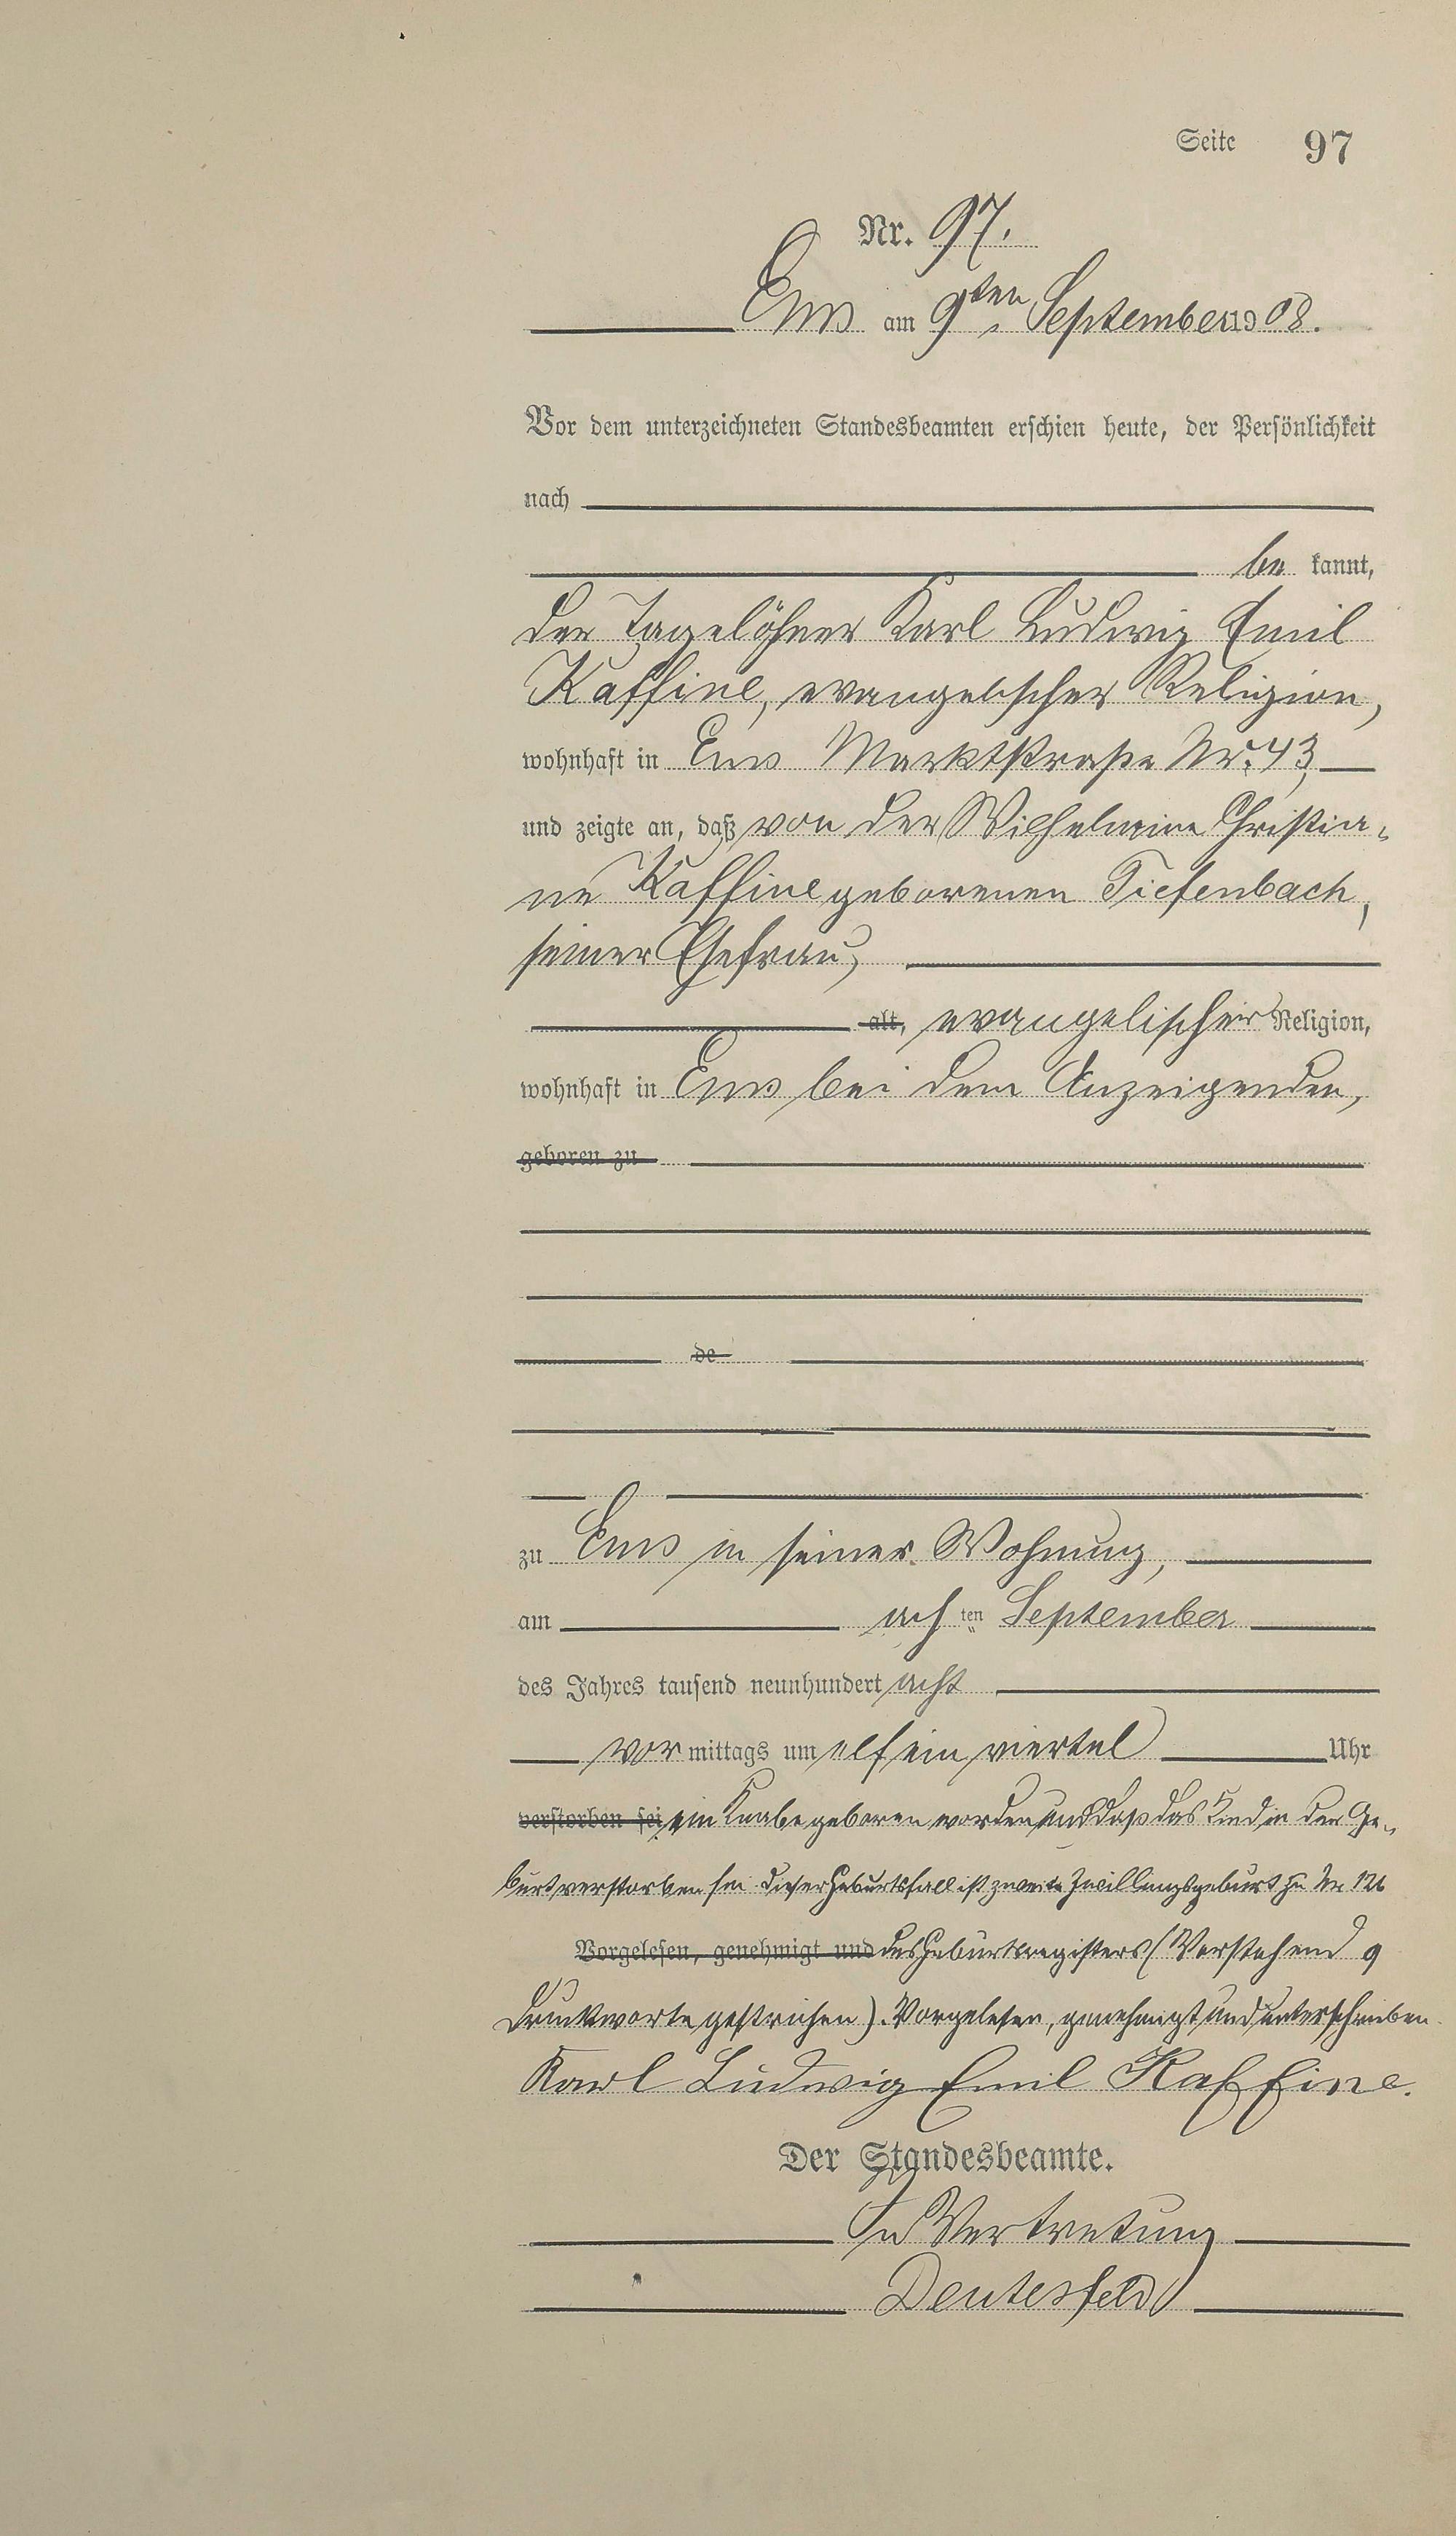 Seite 97
Nr. 97.
Ems am 9ten September 1908.
Vor dem unterzeichneten Standesbeamten erschien heute, der Persönlichkeit
nach
be kannt,
der Tagelöhner Karl Ludwig Emil
Kaffine, evangelischer Religion,
wohnhaft in Ems Marktstraße Nr. 43,
und zeigte an, daß von der Wilhelmine Christia-
ne Kaffine geborenen Tiefenbach,
seiner Ehefrau,
alt, evangelischer Religion,
wohnhaft in Ems bei dem Anzeigenden,
geboren zu
de
zu Ems in seiner Wohnung,
am ach ten September
des Jahres tausend neunhundert acht
vor mittags um elf ein viertel Uhr
verstorben sei ein Knabe geboren worden und daß das Kind in der Ge-
burt verstorben sei dieser Geburtsfall ist zweite Zwillingsgeburt zu Nr. 126
Vorgelesen, genehmigt und des Geburtsregisters (Vorstehend 9
Druckworte gestrichen). Vorgelesen, genehmigt und unterschrieben
Karl Ludwig Emil Kaffine.
Der Standesbeamte.
In Vertretung
Deutesfeld